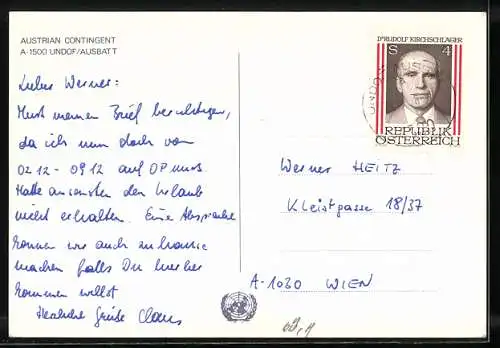 AUSTRIAN CONTINGENT
A-1500 UNDOF/AUSBATT
Lieber Werner:
Muss meinen Brief berichtigen,
da ich nun doch von
02 12 - 09 12 auf OP muss
Hätte ansonsten den Urlaub
nicht erhalten. Eine Absprache
können wir auch zu hause
machen falls Du hierher
kommen willst
Herzliche Grüße Claus
Dr RUDOLF KIRCHSCHLÄGER
S 4
REPUBLIK
ÖSTERREICH
Werner HEITZ
Kleistgasse 18/37
A-1030 WIEN